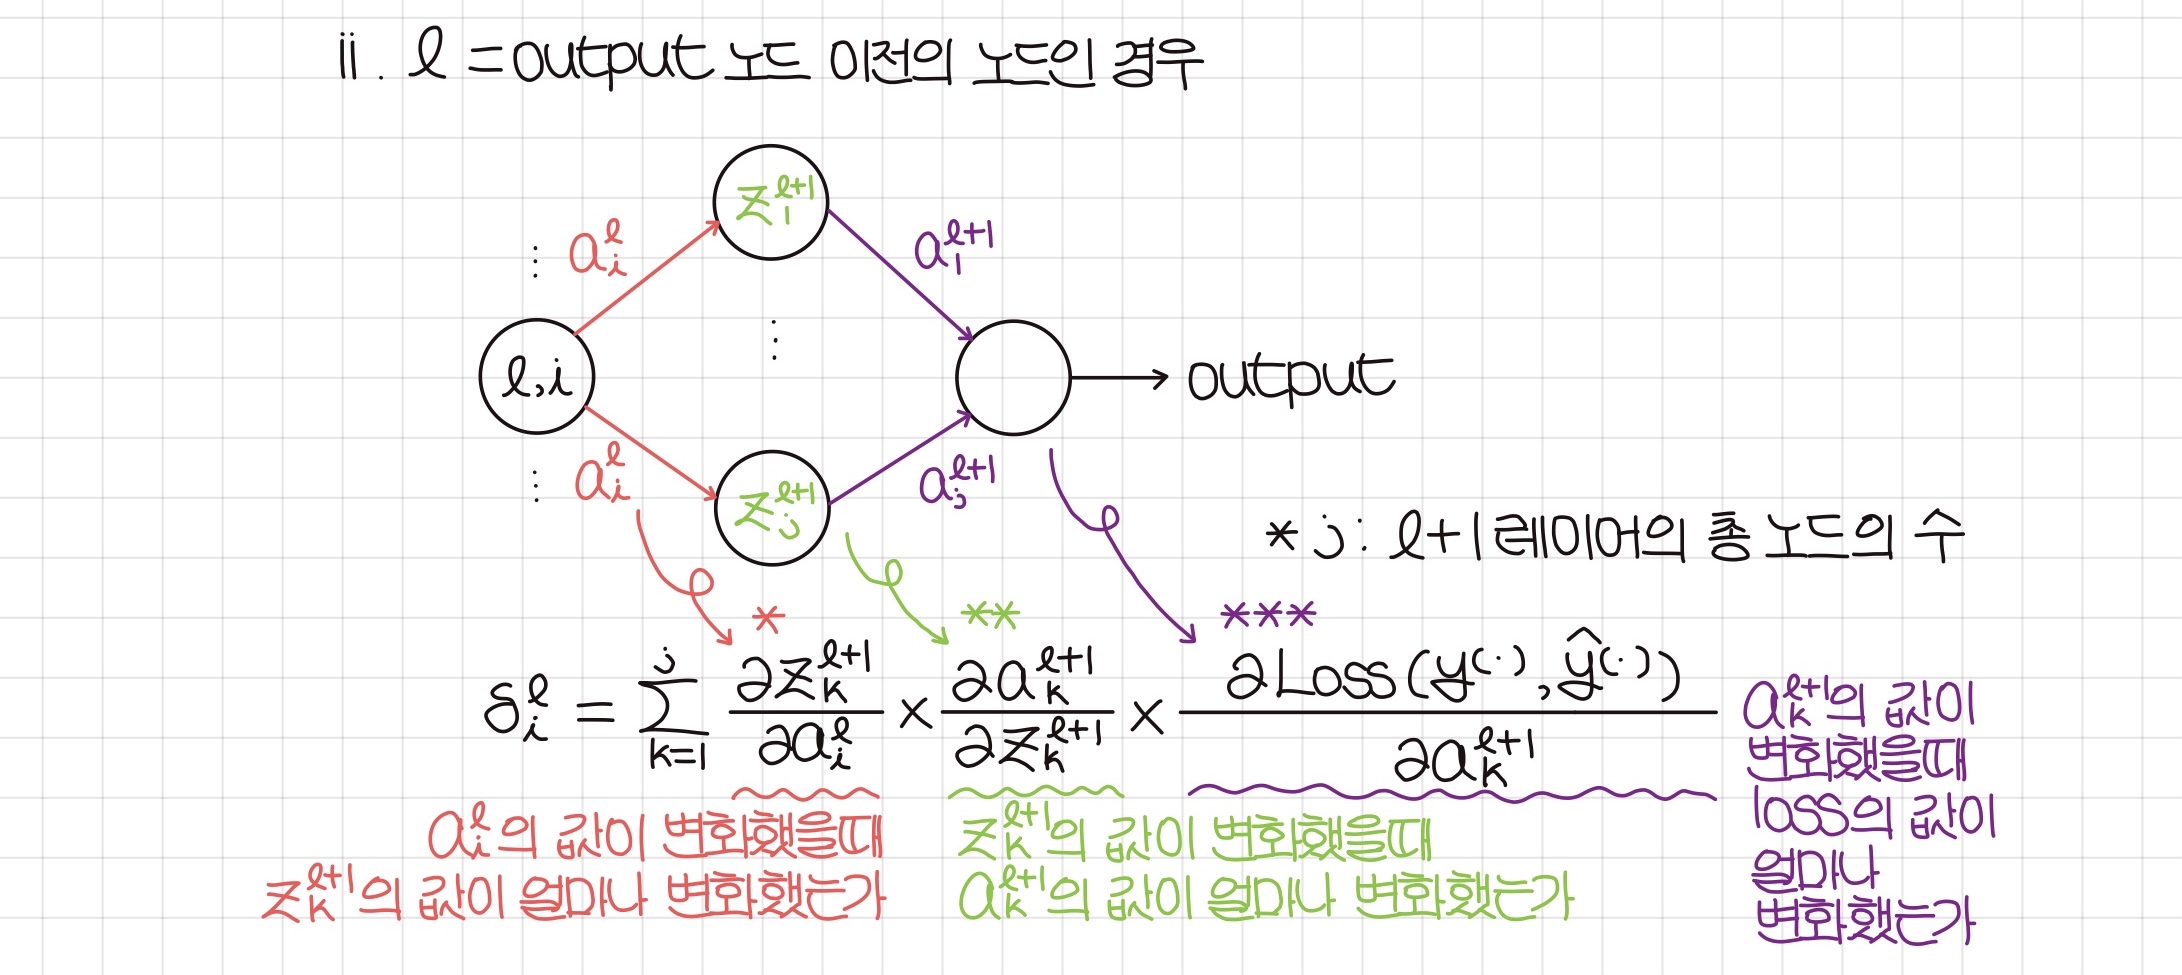 ii. ℓ = output 노드 이전의 노드인 경우
z₁^{ℓ+1}
a_i^ℓ
a₁^{ℓ+1}
⋮
⋮
ℓ,i
output
⋮
a_i^ℓ
z_j^{ℓ+1}
a_j^{ℓ+1}
* j : ℓ+1 레이어의 총 노드의 수
* ** ***
δ_i^ℓ = Σ_{k=1}^{j} ∂z_k^{ℓ+1}/∂a_i^ℓ × ∂a_k^{ℓ+1}/∂z_k^{ℓ+1} × ∂Loss(y^{(·)}, ŷ^{(·)})/∂a_k^{ℓ+1}
a_i^ℓ의 값이 변화했을때
z_k^{ℓ+1}의 값이 얼마나 변화했는가
z_k^{ℓ+1}의 값이 변화했을때
a_k^{ℓ+1}의 값이 얼마나 변화했는가
a_k^{ℓ+1}의 값이
변화했을때
loss의 값이
얼마나
변화했는가